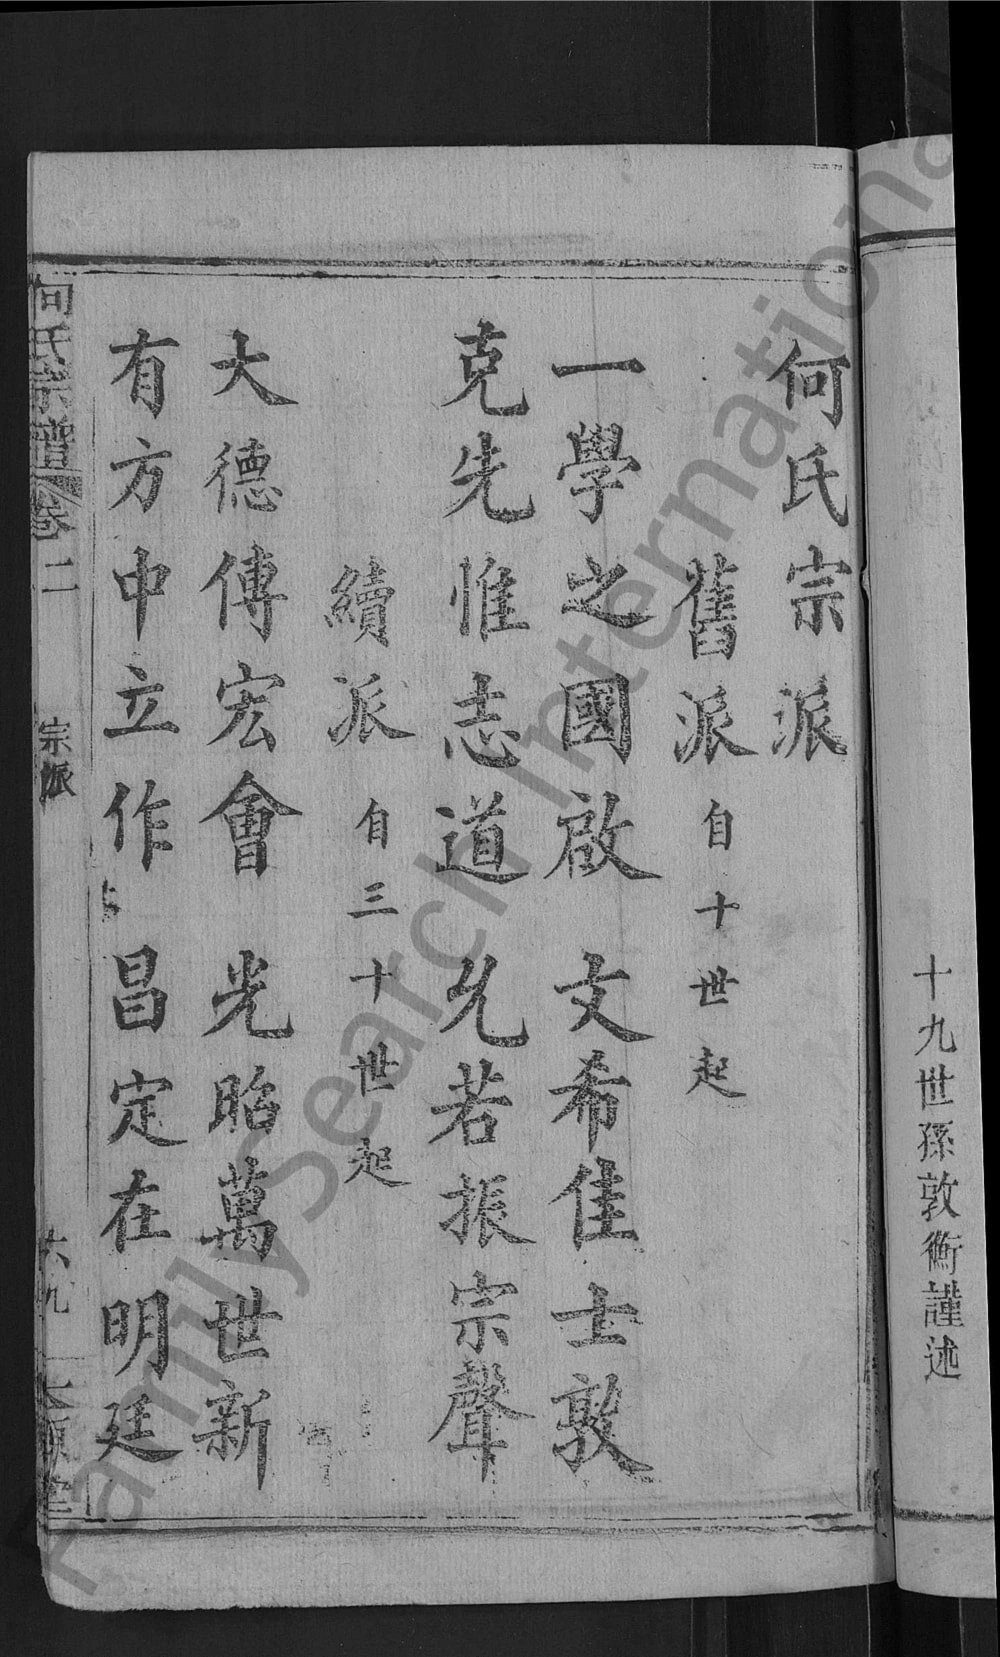 十九世孫敦衡謹述
何氏宗派
舊派 自十世起
一學之國啟 文希佳士敦
克先惟志道 允若振宗聲
續派 自三十世起
大德傳宏會 光昭萬世新
有方中立作 昌定在明廷
何氏宗譜 卷二 宗派 六九
FamilySearch International